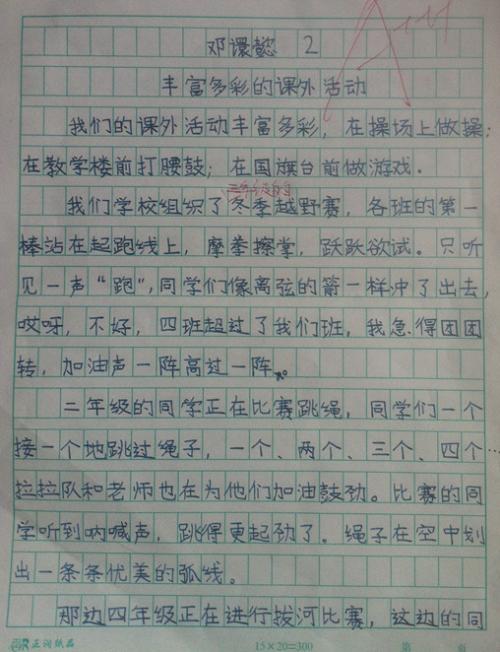 邓懿 2
丰富多彩的课外活动
我们的课外活动丰富多彩，在操场上做操；
在教学楼前打腰鼓；在国旗台前做游戏.
三年级的同
我们学校组织了冬季越野赛，各班的第一
棒站在起跑线上，摩拳擦掌，跃跃欲试。只听
见一声“跑”，同学们像离弦的箭一样冲了出去，
哎呀，不好，四班超过了我们班，我急得团团
转，加油声一阵高过一阵。
二年级的同学正在比赛跳绳，同学们一个
接一个地跳过绳子，一个、两个、三个、四个…
拉拉队和老师也在为他们加油鼓劲。比赛的同
学听到呐喊声，跳得更起劲了。绳子在空中划
出一条条优美的弧线。
那边四年级正在进行拔河比赛，这边的同
正润纸品 15×20=300 第 页